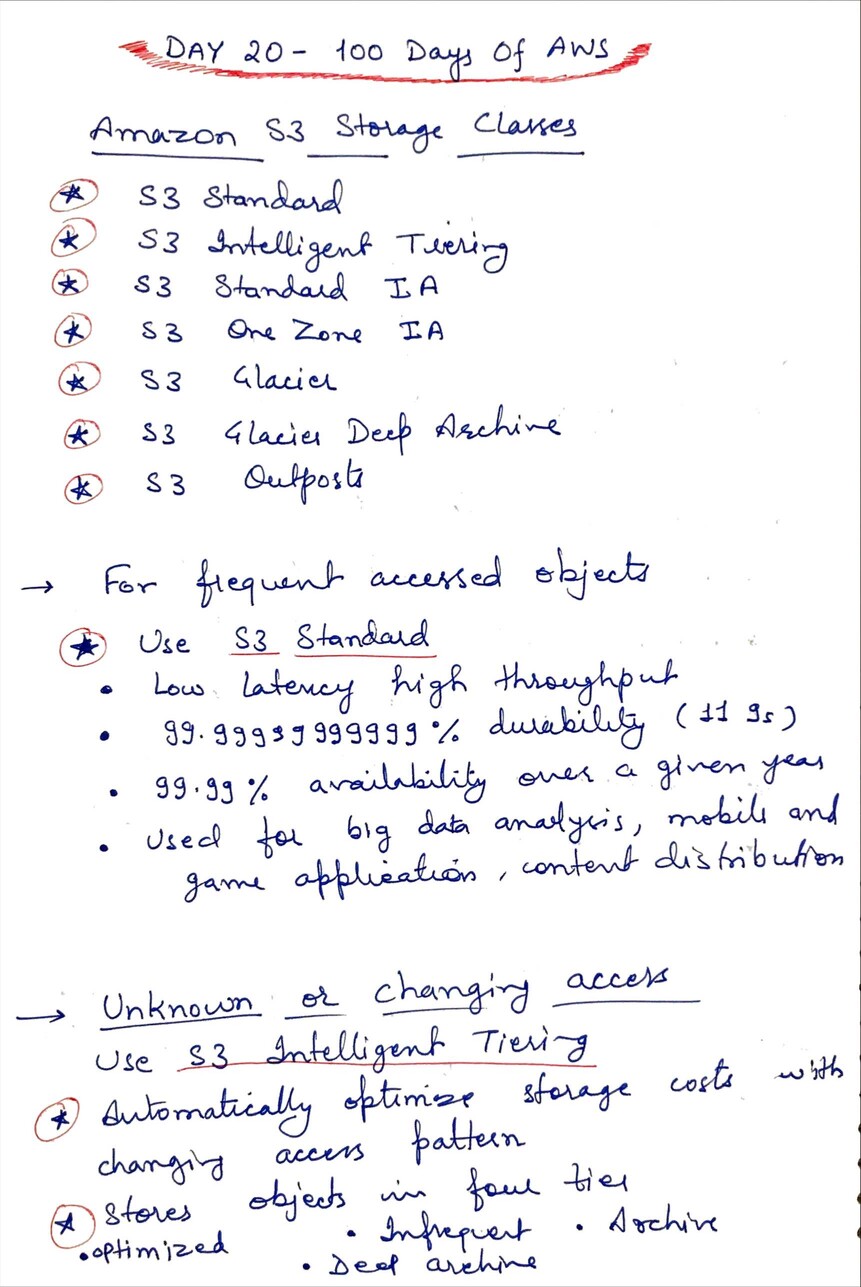 DAY 20 - 100 Days Of AWS
Amazon S3 Storage Classes
S3 Standard
S3 Intelligent Tiering
S3 Standard IA
S3 One Zone IA
S3 Glacier
S3 Glacier Deep Archive
S3 Outposts
→ For frequent accessed objects
Use S3 Standard
• Low latency high throughput
• 99.99999999999% durability (11 9s)
• 99.99% availability over a given year
• Used for big data analysis, mobile and
game application, content distribution
→ Unknown or changing access
Use S3 Intelligent Tiering
Automatically optimize storage costs with
changing access pattern
Stores objects in four tier
• optimized • Infrequent • Archive
• Deep archive